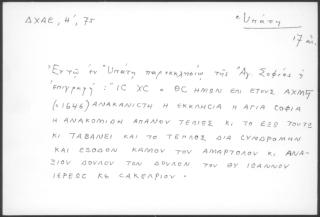 ΔΧΑΕ, Η', 75
Ὑπάτη
17 αἰ.
Ἐν τῷ ἐν Ὑπάτῃ παρεκκλησίῳ τῆς Ἁγ. Σοφίας ἡ
ἐπιγραφή : IC XC Ο ΘC ΗΜΩΝ ΕΠΙ ΕΤΟΥΣ ΑΧΜϚ
(=1646) ΑΝΑΚΑΝΙΣΤΗ Η ΕΚΚΛΗΣΙΑ Η ΑΓΙΑ ΣΟΦΙΑ
Η ΑΝΑΚΟΜΙΔΗ ΑΠΑΝΟΥ ΤΕΛΙΕΣ ΚΙ ΤΟ ΕΞΟ ΤΟΥΤΟ
ΚΙ ΤΑΒΑΝΕΙ ΚΑΙ ΤΟ ΤΕΜΠΛΟΣ ΔΙΑ ΣΥΝΔΡΟΜΗΝ
ΚΑΙ ΕΞΟΔΟΝ ΚΑΜΟΥ ΤΟΥ ΑΜΑΡΤΟΛΟΥ ΚΙ ΑΝΑ-
ΞΙΟΥ ΔΟΥΛΟΥ ΤΟΝ ΔΟΥΛΟΝ ΤΟΥ ΘΥ ΙΩΑΝΝΟΥ
ΙΕΡΕΩΣ ΚΕ ΣΑΚΕΛΡΙΟΥ.